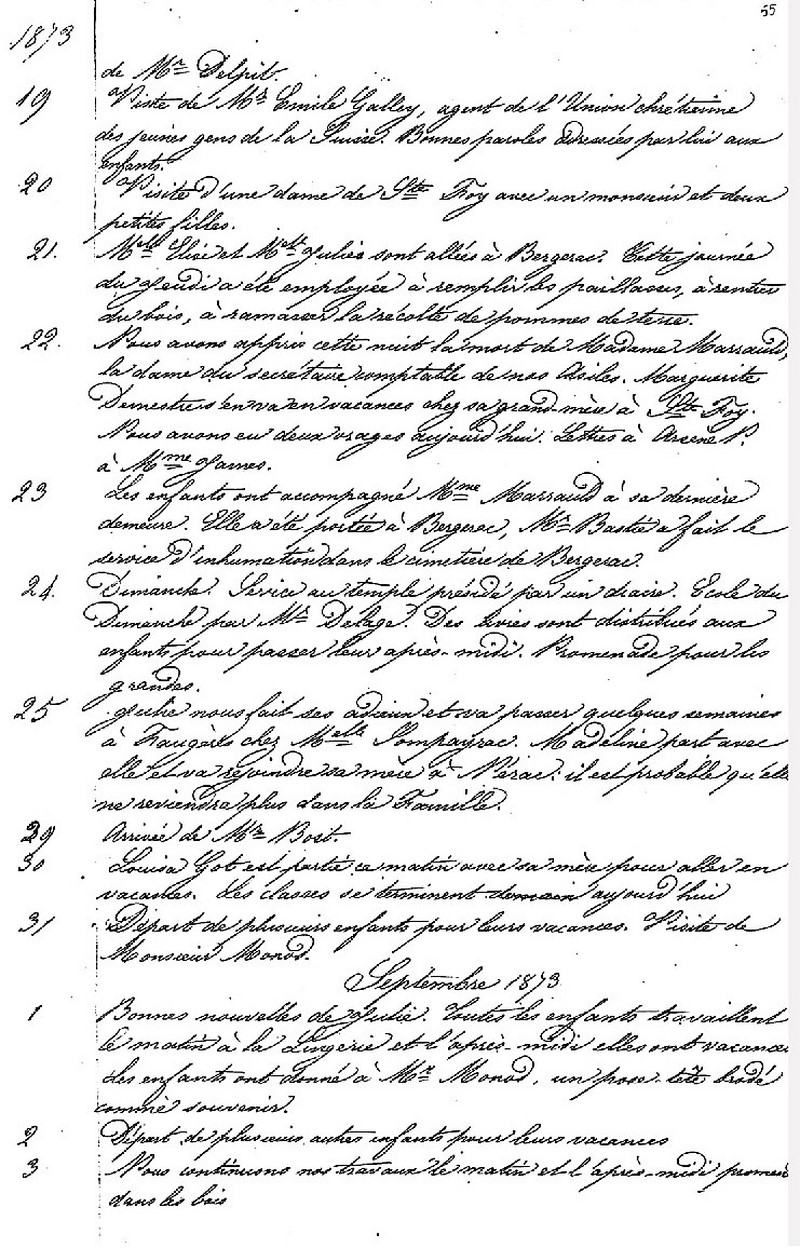 55
1873
de Mr Delpit.
19 Visite de Mr Emile Galley, agent de l'Union chrétienne
des jeunes gens de la Suisse. Bonnes paroles adressées par lui aux
enfants.
20 Visite d'une dame de Ste Foy avec un monsieur et deux
petites filles.
21. Melle Elise et Melle Julie sont allées à Bergerac. Cette journée
du Jeudi a été employée à remplir les paillasses, à rentrer
du bois, à ramasser la récolte de pommes de terre.
22. Nous avons appris cette nuit la mort de Madame Marrauld,
la dame du secrétaire comptable de nos Asiles. Marguerite
Demestre s'en va en vacances chez sa grand-mère à Ste Foy.
Nous avons eu deux orages aujourd'hui. Lettres à Arsène P.
à Mme James.
23 Les enfants ont accompagné Mme Marrauld à sa dernière
demeure. Elle a été portée à Bergerac, Mr Bastie a fait le
service d'inhumation dans le cimetière de Bergerac.
24. Dimanche. Service au temple présidé par un diacre. Ecole du
Dimanche par Mr Delage. Des livres sont distribués aux
enfants pour passer leur après-midi. Promenade pour les
grandes.
25 Julie nous fait ses adieux et va passer quelques semaines
à Faugères chez Melle Sompayrac. Madeline part avec
elle et va rejoindre sa mère à Nérac: il est probable qu'elle
ne reviendra plus dans la Famille.
29 Arrivée de Mr Bost.
30 Louisa Got est partie ce matin avec sa mère pour aller en
vacances. Les classes se terminent demain aujourd'hui
31 Départ de plusieurs enfants pour leurs vacances. Visite de
Monsieur Monod.
Septembre 1873
1 Bonnes nouvelles de Julie. Toutes les enfants travaillent
le matin à la Lingerie et l'après-midi elles ont vacance
Les enfants ont donné à Mr Monod, un pose-tête brodé
comme souvenir.
2 Départ de plusieurs autres enfants pour leurs vacances
3 Nous continuons nos travaux le matin et l'après-midi
dans les bois